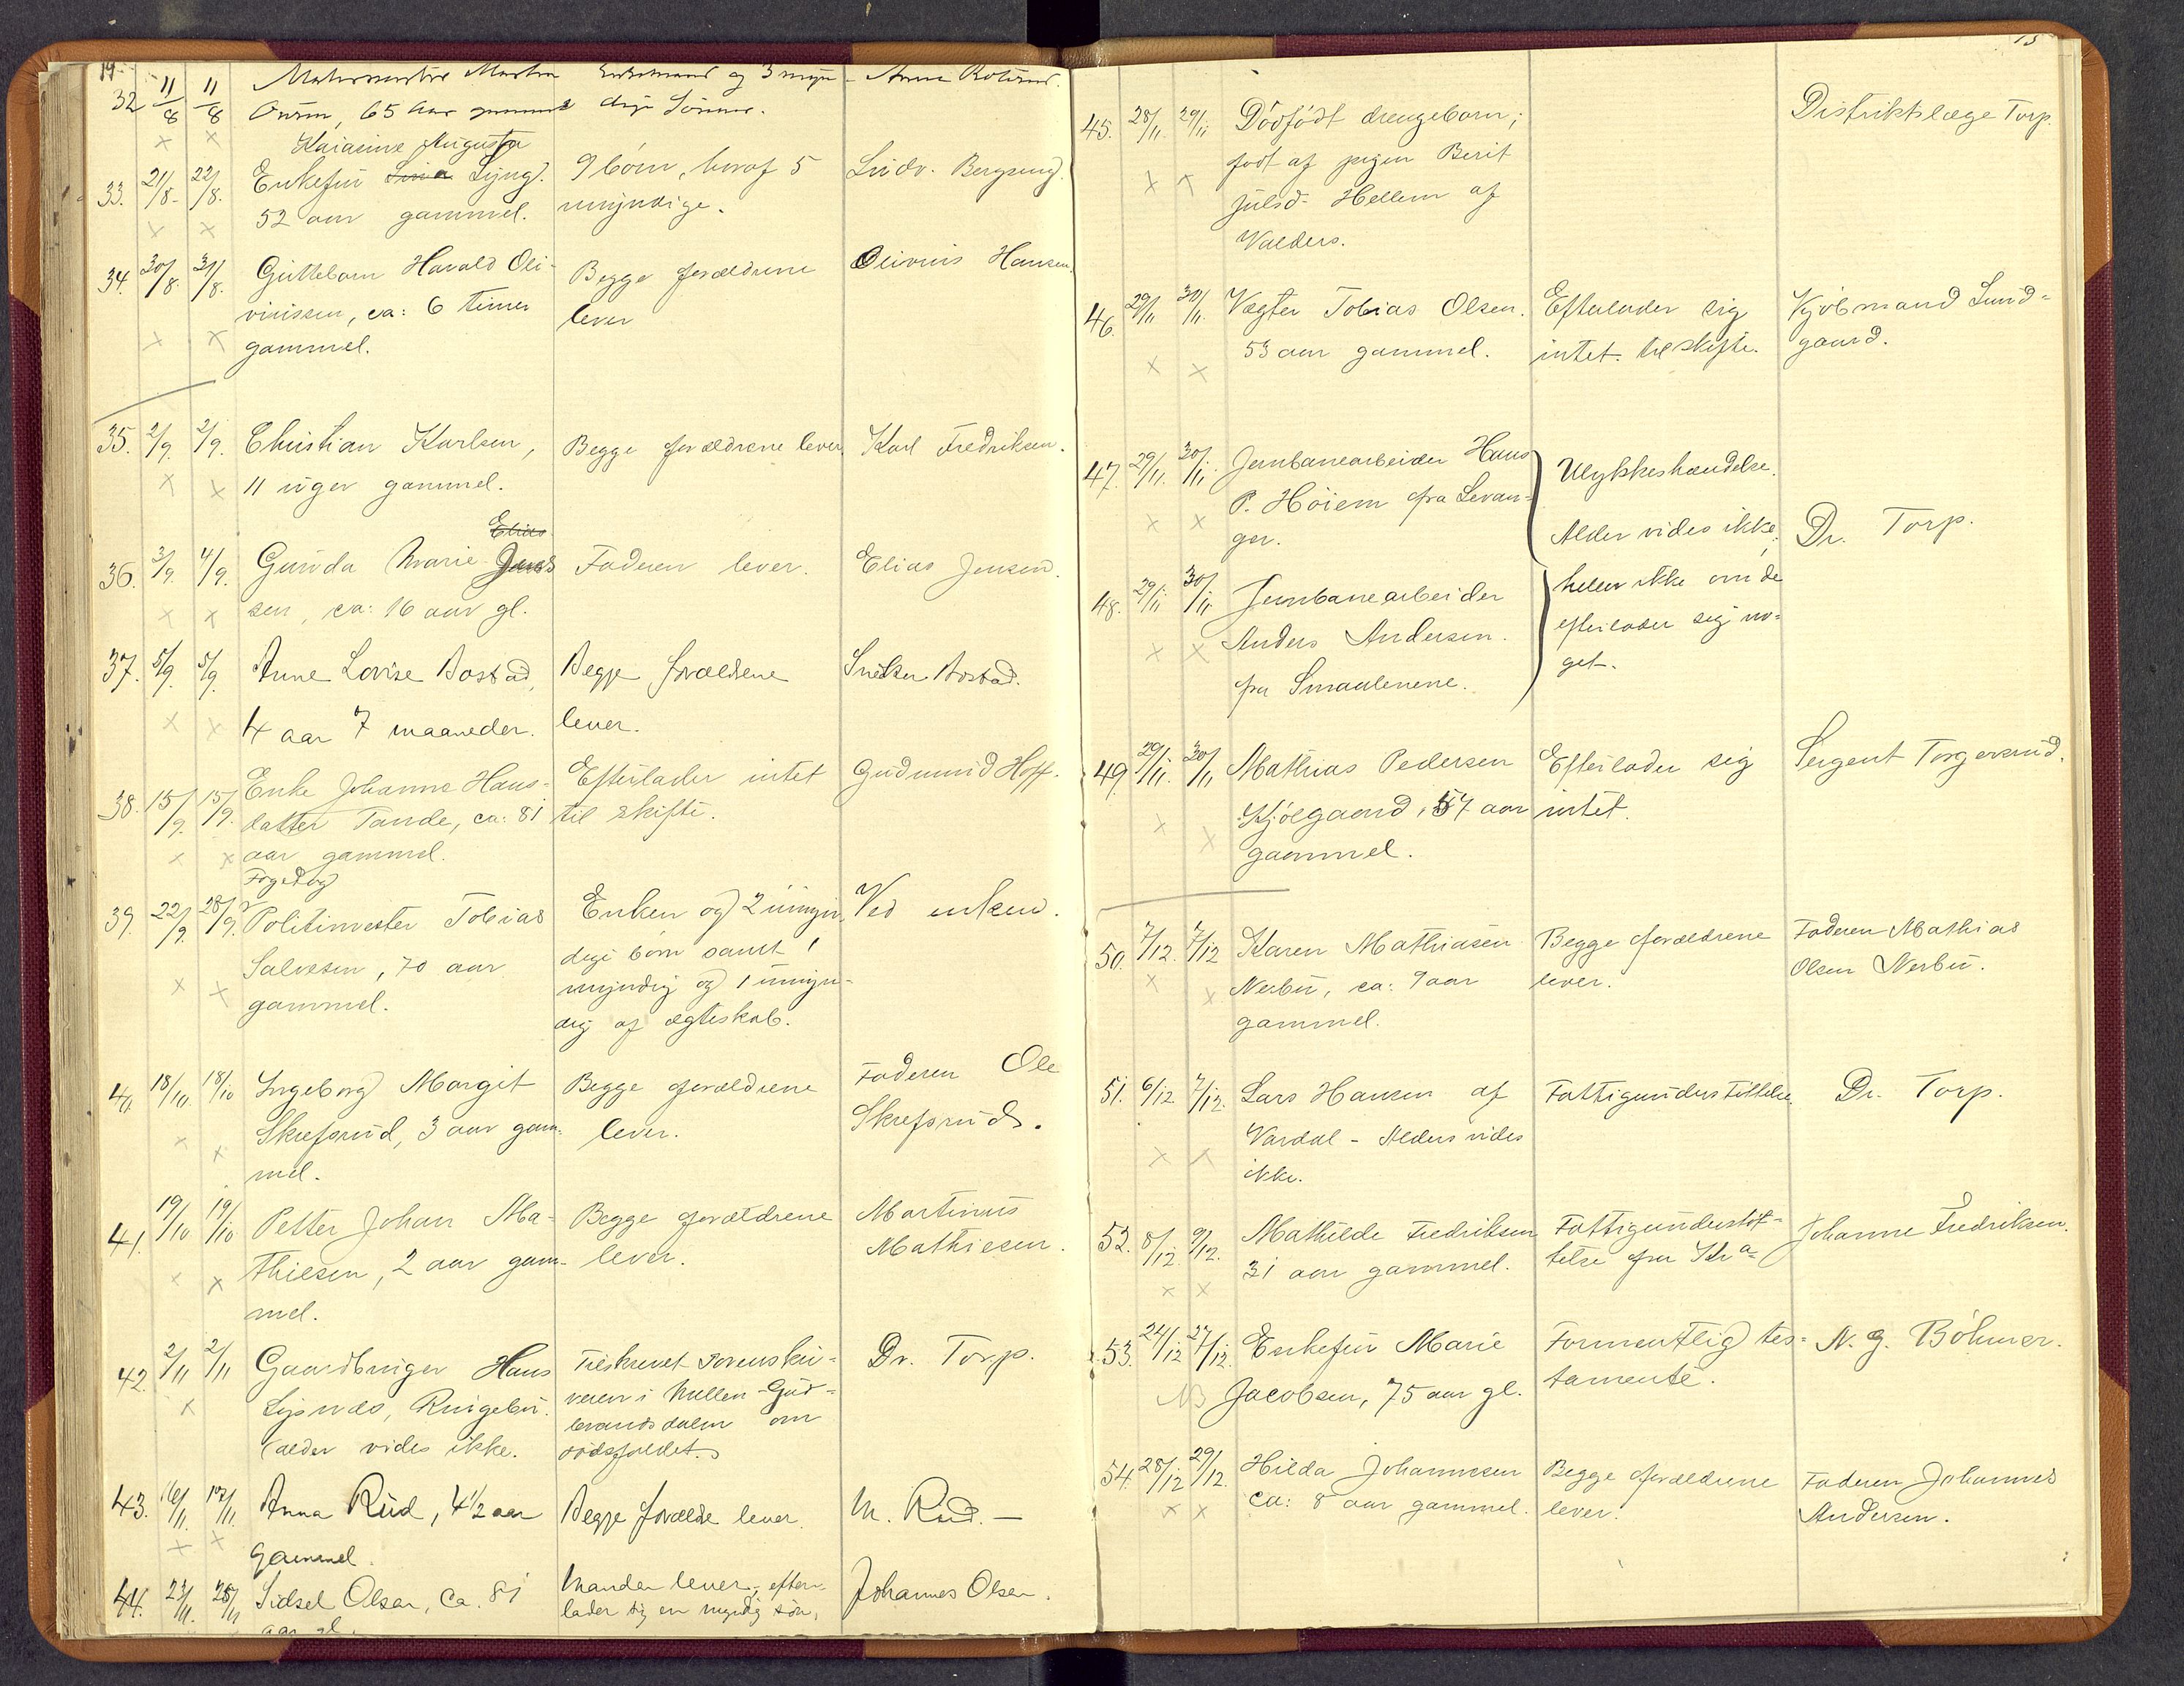 14
32 11/8 11/8 65 Aar Enkemand og 3 myn-
dige Sönner. Anne
Kararine Augusta
33. 21/8. 22/8. Enkefru Lina Lyng. 9 börn, horaf 5 Ludv. Bergseng.
52 aar gammel. umyndige.
34. 30/8. 31/8. Guttebarn Harald Oli- Begge forældrene Olivius Hansen.
viussen, ca: 6 timer lever
gammel.
35. 2/9. 2/9. Christian Karlsen, Begge forældrene lever Karl Fredriksen.
11 uger gammel.
Elias
36. 3/9. 4/9. Gunda Marie Jens Faderen lever. Elias Jensen.
sen, ca: 16 aar gl.
37. 5/9. 5/9. Anne Lovise Bostad, Begge forældrene Snedker Bostad.
4 aar 7 maaneder. lever.
38. 15/9. 15/9. Enke Johanne Hans- Efterlader intet Gudmund Hoff.
datter Tande, ca: 81 til skifte.
aar gammel.
Foged og
39. 22/9. 28/9. Politimester Tobias Enken og 2 umyn- Ved enken.
Salvesen, 70 aar dige börn samt 1
gammel. myndig og 1 umyn-
dig af ægteskab.
40. 18/10. 18/10 Ingeborg Margit Begge forældrene Faderen Ole
Skrefsrud, 3 aar gam- lever. Skrefsrud.
mel.
41. 19/10 19/10 Petter Johan Ma- Begge forældrene Martinus
thiesen, 2 aar gam- lever. Mathiesen.
mel.
42. 2/11 2/11 Gaardbruger Hans Tilskrevet Sorenskri- Dr. Torp.
Ringebu. veren i Mellem-Gud-
(alder vides ikke. brandsdalen om
dödsfaldet.
43. 16/11. 17/11. Anna Rud, 4 1/2 aar Begge forældre lever. M. Rud. —
gammel.
44. 23/11. 25/11 Sidsel Olsen, ca. 81 Manden lever, efter- Johannes Olsen.
aar gl. lader sig en myndig sön.
15
45. 28/11. 29/11 Dödfödt drengebarn; Distriktslæge Torp.
födt af pigen Berit
Julsd. Hellem af
Valders.
46. 29/11 30/11. Vægter Tobias Olsen. Efterlader sig Kjöbmand Lund-
53 aar gammel. intet til skifte. gaard.
47. 29/11. 30/11. Jernbanearbeider Hans Ulykkeshændelse.
P. Höiem fra Levan-
ger. Alder vides ikke, Dr. Torp.
48. 29/11 30/11. Jernbanearbeider heller ikke om de
Anders Andersen. efterlader sig no-
fra Smaalenene. get.
49. 29/11. 30/11 Mathias Pedersen Efterlader sig Sergent Torgersrud.
Kjölgaard, 57 aar intet.
gammel.
50. 7/12. 7/12 Karen Mathiasen Begge forældrene Faderen Mathias
Nerbu, ca: 9 aar lever. Olsen Nerbu.
gammel.
51. 6/12 7/12. Lars Hansen af Fattigunderstöttelse. Dr. Torp.
Vardal - Alders vides
ikke.
52. 8/12. 9/12. Mathilde Fredriksen Fattigunderstöt- Johanne Fredriksen.
31 aar gammel. telse fra Kr a=
53. 24/12 27/12. Enkefru Marie Formentlig tes- N. G. Böhmer.
NB Jacobsen, 75 aar gl. tamente.
54. 28/12 29/12. Hilda Johannesen Begge forældrene Faderen Johannes
ca: 8 aar gammel. lever. Andersen.